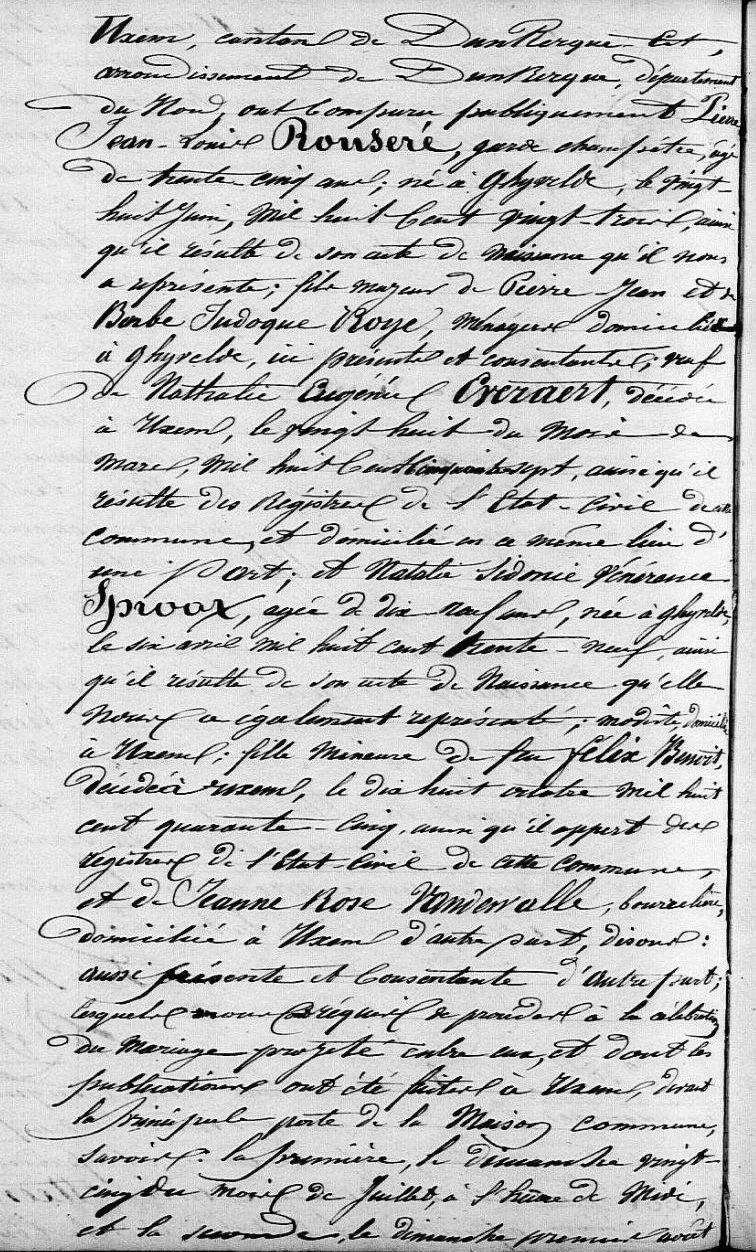 Uxem, canton de DunKerque Est,
arrondissement de DunKerque, département
du Nord, ont Comparu publiquement Pierre
Jean-Louis Rouseré, garde champêtre, âgé
de trente-cinq ans; né à Ghyvelde, le vingt-
huit Juin, Mil huit Cent vingt-trois, ainsi
qu'il résulte de son acte de naissance qu'il nous
a représenté; fils majeur de Pierre-Jean et de
Barbe Judoque Roye, Ménagers domiciliés
à Ghyvelde, ici présents et consentants; veuf
de Nathalie Eugénie Everaert, décédée
à Uxem, le vingt huit du Mois de
Mars, Mil huit Cent Cinquante sept, ainsi qu'il
résulte des Régistres de l'Etat-Civil de cette
Commune, et domicilié en ce même lieu d'
une Part; et Natalie Sidonie Vénérance
Sproox, agée de dix neuf ans, née à Ghyvelde,
le six avril mil huit cent trente-neuf, ainsi
qu'il résulte de son acte de Naissance qu'elle
Nous a également représenté; modiste, domiciliée
à Uxem; fille Mineure de feu félix Benoît,
décédé à uxem, le dix huit octobre Mil huit
cent quarante-Cinq, ainsi qu'il appert des
régistres de l'Etat-Civil de cette Commune,
et de Jeanne Rose Vandenwalle, bourrelière,
domiciliée à Uxem d'autre part, disons:
aussi présente et Consentante d'autre part;
lesquels nous requis de procéder à la célébration
du Mariage projeté entre eux, et dont les
publications ont été faites à Uxem, devant
la principale porte de la Maison commune,
Savoir: la première, le dimanche vingt-
cinq du mois de Juillet, à l'heure de Midi,
et la seconde, le dimanche premier août